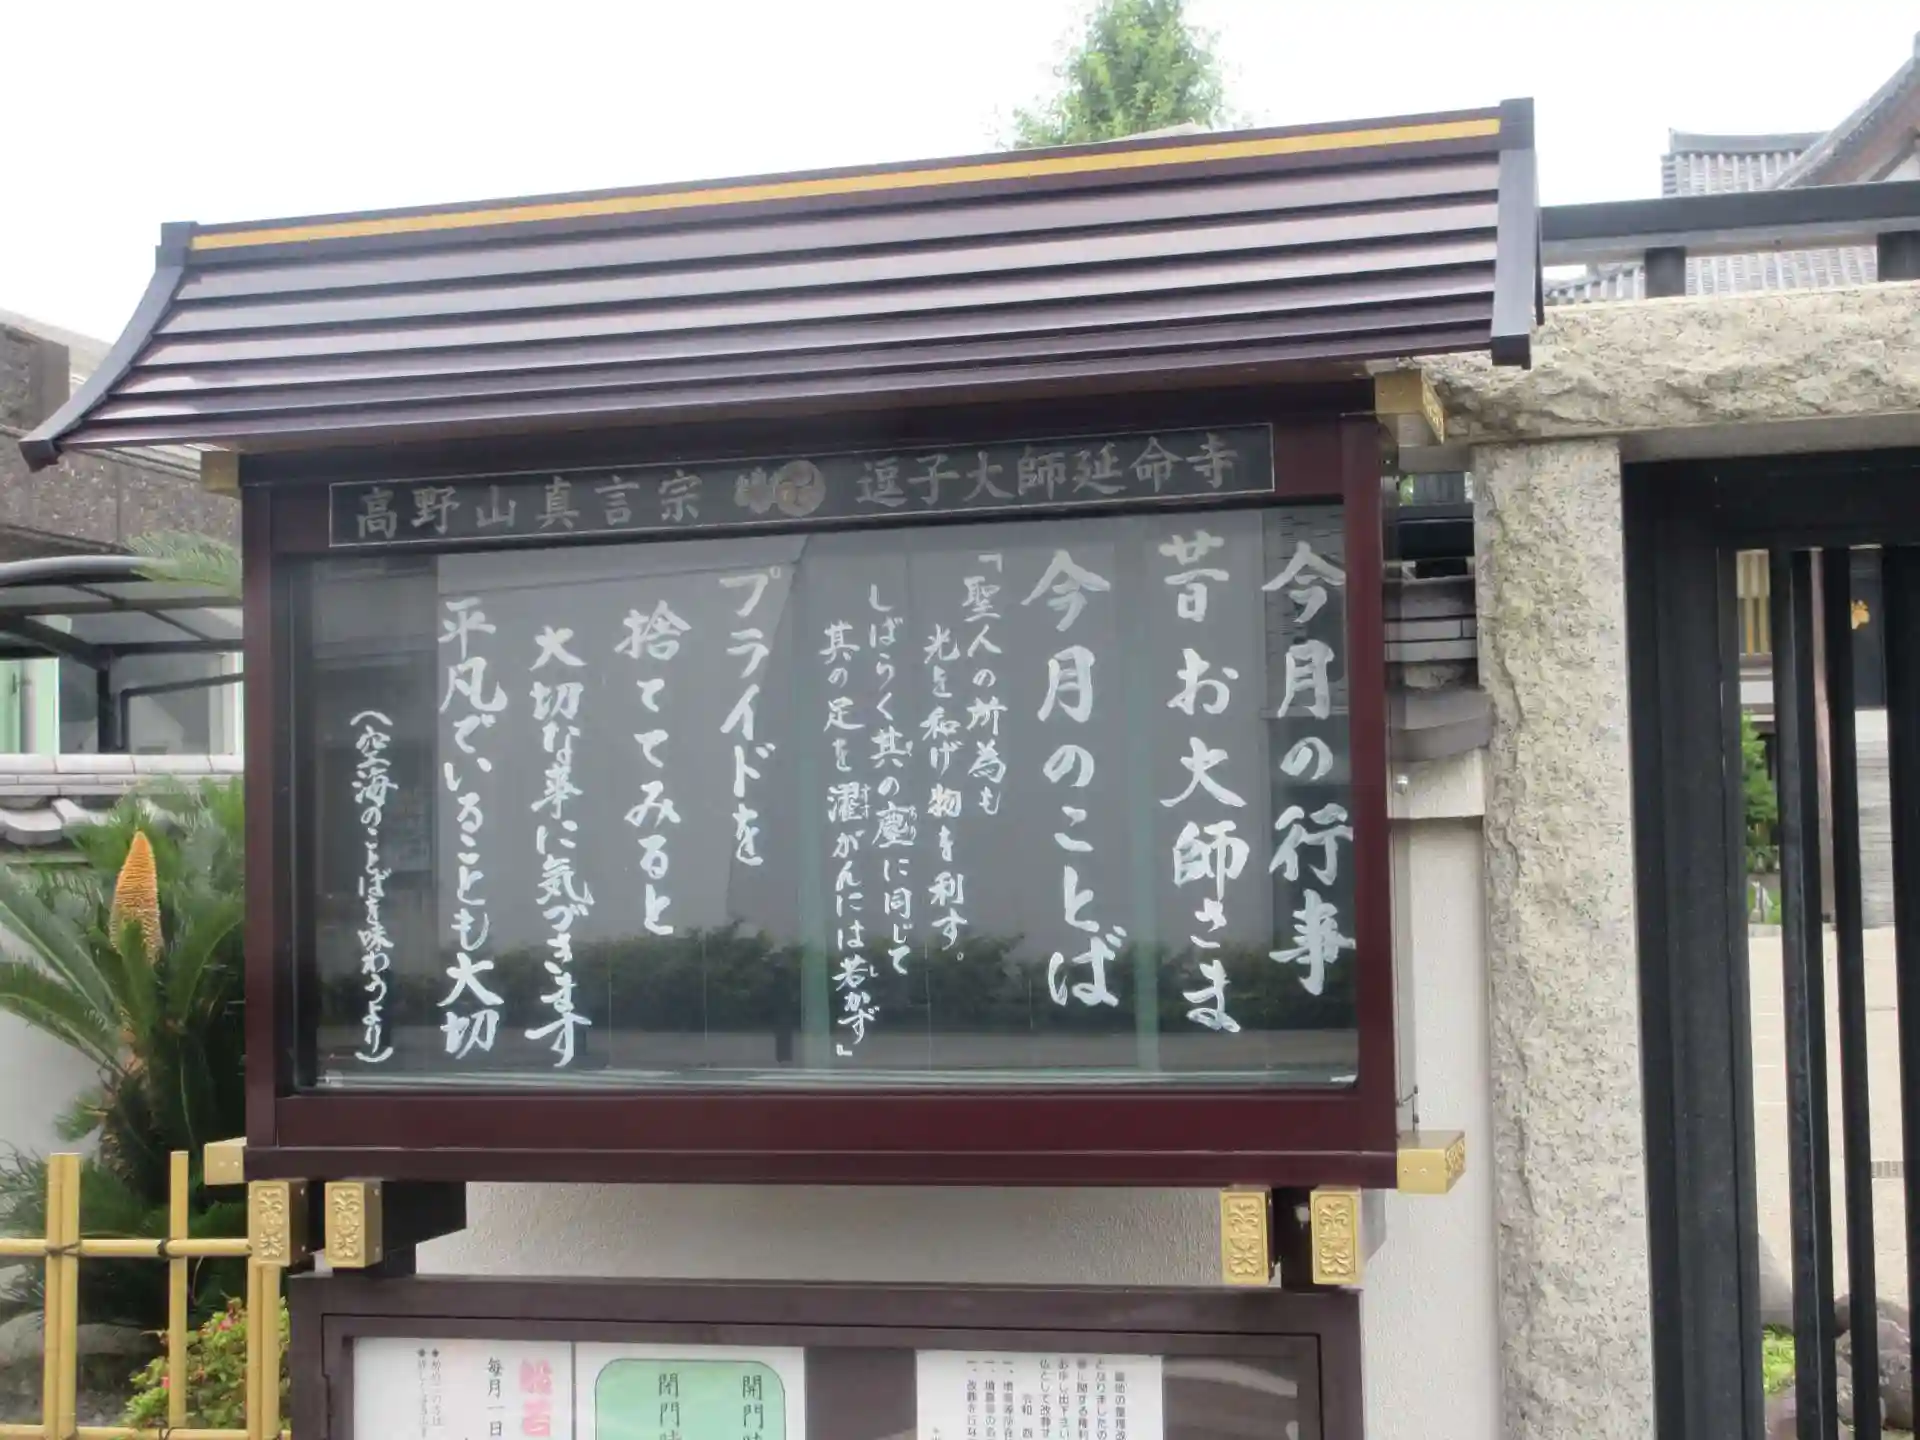 高野山真言宗 逗子大師延命寺
今月の行事
昔お大師さま
今月のことば
「聖人の所為も
光を和げ物を利す。
しばらく其の塵に同じて
其の足を濯がんには若かず」
プライドを
捨ててみると
大切な事に気づきます
平凡でいることも大切
(空海のことばを味わうより)
開門時
閉門時
毎月一日